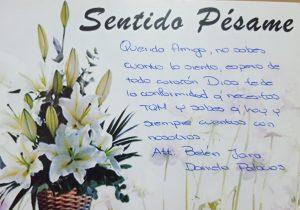 Sentido Pésame
Querido Amigo, no sabes
cuanto lo siento, espero de
todo corazón Dios te de
la conformidad q necesitas
TQM y sabes q hoy y
siempre cuentas con
nosotros.
Att. Belén Jara
Daniela Palacios